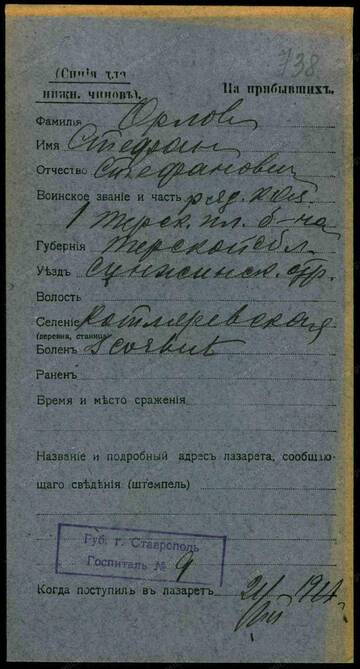 738
(Синія для
нижн. чиновъ).
На прибывшихъ.
Фамилія Орлов
Имя Стефан
Отчество Стефанович
Воинское званіе и часть ряд.
1 Терск. пл. б-на
Губернія Терской обл.
Уѣздъ Сунженск. отр.
Волость
Селеніе Котляревская
(деревня, станица)
Боленъ Scorbut
Раненъ
Время и мѣсто сраженія
Названіе и подробный адресъ лазарета, сообщаю-
щаго свѣдѣнія (штемпель)
Губ. г. Ставрополь
Госпиталь № 9
Когда поступилъ въ лазаретъ